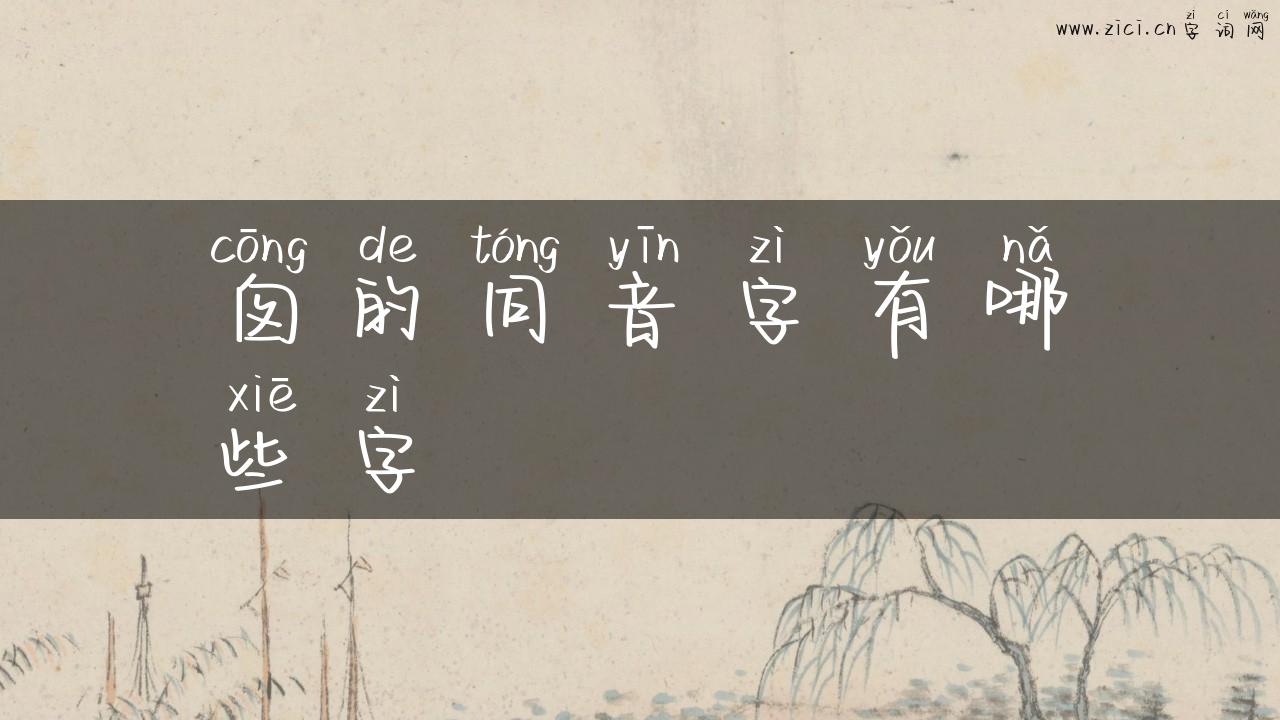 zì cí wǎng
www.zici.cn 字 词 网
cōng de tóng yīn zì yǒu nǎ
囱 的 同 音 字 有 哪
xiē zì
些 字